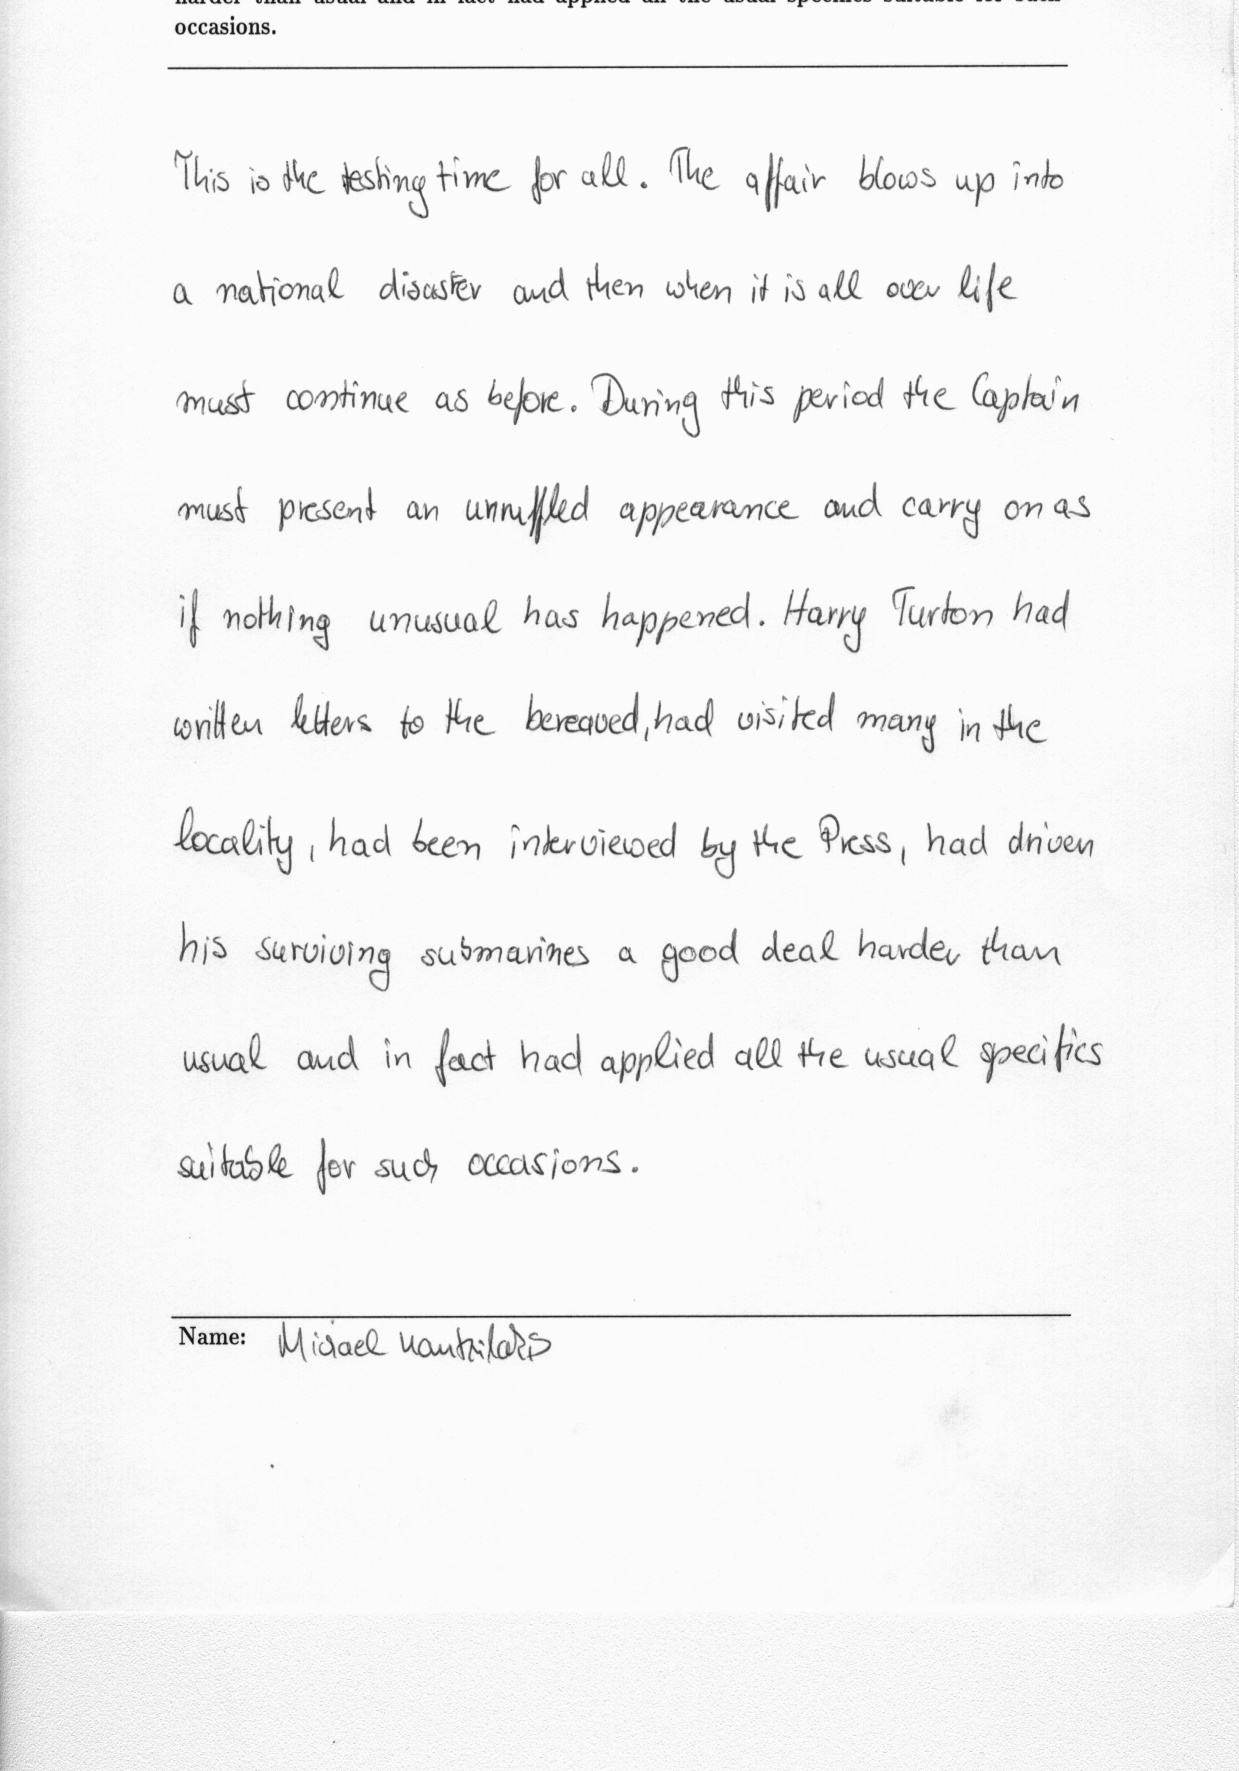 occasions.
This is the testing time for all. The affair blows up into
a national disaster and then when it is all over life
must continue as before. During this period the Captain
must present an unruffled appearance and carry on as
if nothing unusual has happened. Harry Turton had
written letters to the bereaved, had visited many in the
locality, had been interviewed by the Press, had driven
his surviving submarines a good deal harder than
usual and in fact had applied all the usual specifics
suitable for such occasions.
Name: Michael